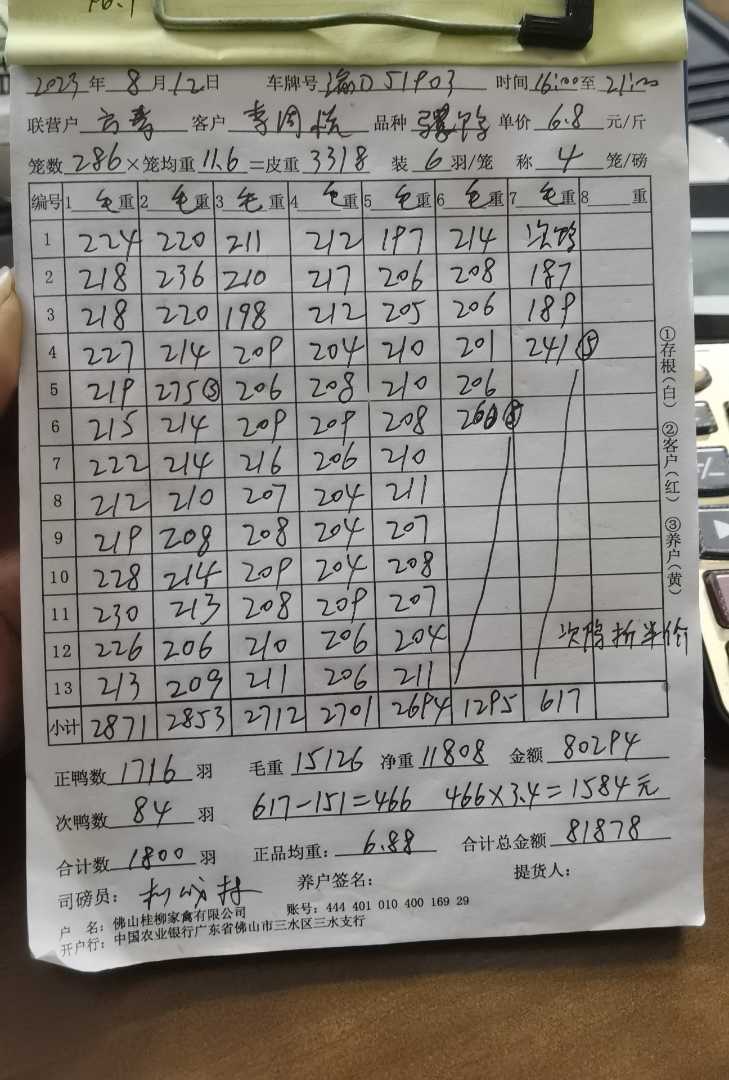 2023 年 8 月 12 日 车牌号 渝D51903 时间 16:00 至 21:00
联营户 客户 李周 品种 单价 6.8 元/斤
笼数 286 × 笼均重 11.6 = 皮重 3318 装 6 羽/笼 称 4 笼/磅
编号 1 毛重 2 毛重 3 毛重 4 毛重 5 毛重 6 毛重 7 毛重 8 重
1 224 220 211 212 197 214 次鸭
2 218 236 210 217 206 208 187
3 218 220 198 212 205 206 189
4 227 214 209 204 210 201 241⑤
5 219 275⑤ 206 208 210 206
6 215 214 209 209 208
7 222 214 216 206 210
8 212 210 207 204 211
9 219 208 208 204 207
10 228 214 209 204 208
11 230 213 208 209 207
12 226 206 210 206 204 次鸭折半价
13 213 209 211 206 211
小计 2871 2853 2712 2701 2694 1295 617
正鸭数 1716 羽 毛重 15126 净重 11808 金额 80294
次鸭数 84 羽 617-151=466 466×3.4=1584元
合计数 1800 羽 正品均重: 6.88 合计总金额 81878
司磅员: 养户签名: 提货人:
户 名: 佛山桂柳家禽有限公司 账号: 444 401 010 400 169 29
开户行: 中国农业银行广东省佛山市三水区三水支行
①存根(白) ②客户(红) ③养户(黄)